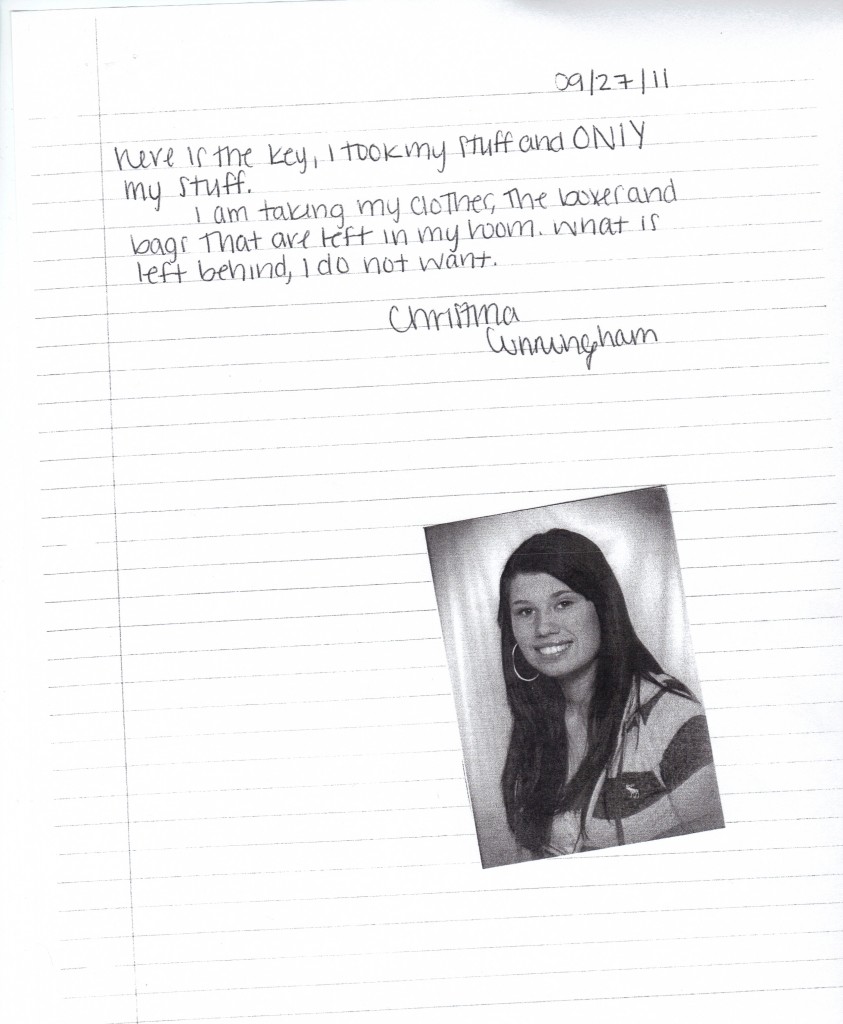 09/27/11
here is the key, I took my stuff and ONLY
my stuff.
I am taking my clothes, The boxes and
bags that are left in my room. what is
left behind, I do not want.
Christina
Cunningham